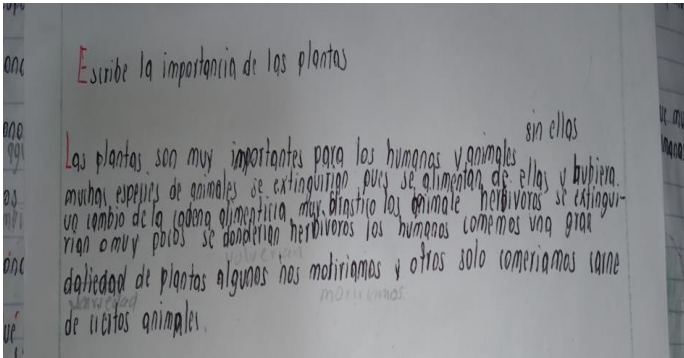 Escribe la importancia de las plantas
sin ellas
Las plantas son muy importantes para los humanos y animales
muchas especies de animales se extinguirian pues se alimentan de ellas y hubiera
un cambio de la cadena alimenticia muy drastico los animale herbivoros se extingui-
rian o muy pocos se donderian herbivoros los humanos comemos una gran
volverian
daliedad de plantas algunos nos motiriamos y otros solo comeriamos carne
variedad moririamos
de ciertos animales.